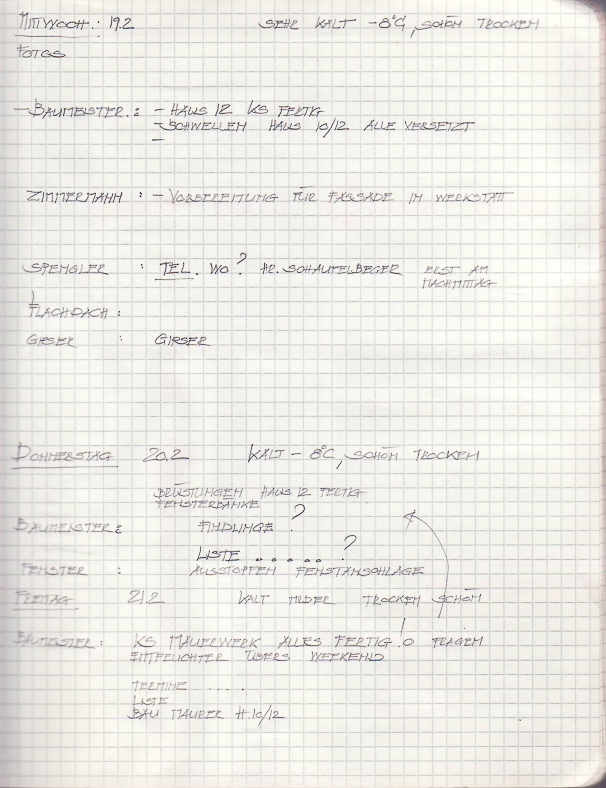 MITTWOCH.: 19.2 SEHR KALT -8°C, SCHÖN TROCKEN
FOTOS
-BAUMEISTER.: - HAUS 12 KS FERTIG
-SCHWELLEN HAUS 10/12 ALLE VERSETZT
-
ZIMMERMANN : - VORBEREITUNG FÜR FASSADE IM WERKSTATT
SPENGLER : TEL. WO? HR. SCHAUFELBEGER ERST AM
NACHMITTAG
FLACHDACH :
GIPSER : GIPSER
DONNERSTAG 20.2 KALT - 8°C, SCHÖN TROCKEN
BRÜSTUNGEN HAUS 12 FERTIG
FENSTERBÄNKE
BAUMEISTER: FINDLINGE ?
LISTE ...... ?
FENSTER : AUSSTOPFEN FENSTANSCHLAGE
FREITAG 21.2 KALT MILDER TROCKEN SCHÖN
BAUMEISTER: KS MAUERWERK ALLES FERTIG. O FRAGEN
ENTFEUCHTER ÜBERS WEEKEND
TERMINE .....
LISTE
BAU MAURER H.10/12